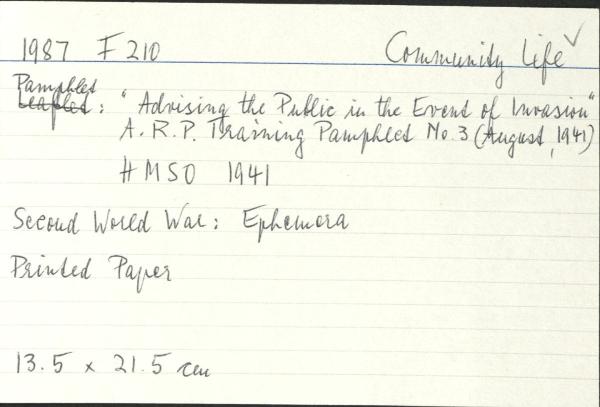 1987 F 210 Community Life ✓
Pamphlet
Leaflet: "Advising the Public in the Event of Invasion"
A.R.P. Training Pamphlet No. 3 (August, 1941)
HMSO 1941
Second World War: Ephemera
Printed Paper
13.5 x 21.5 cm